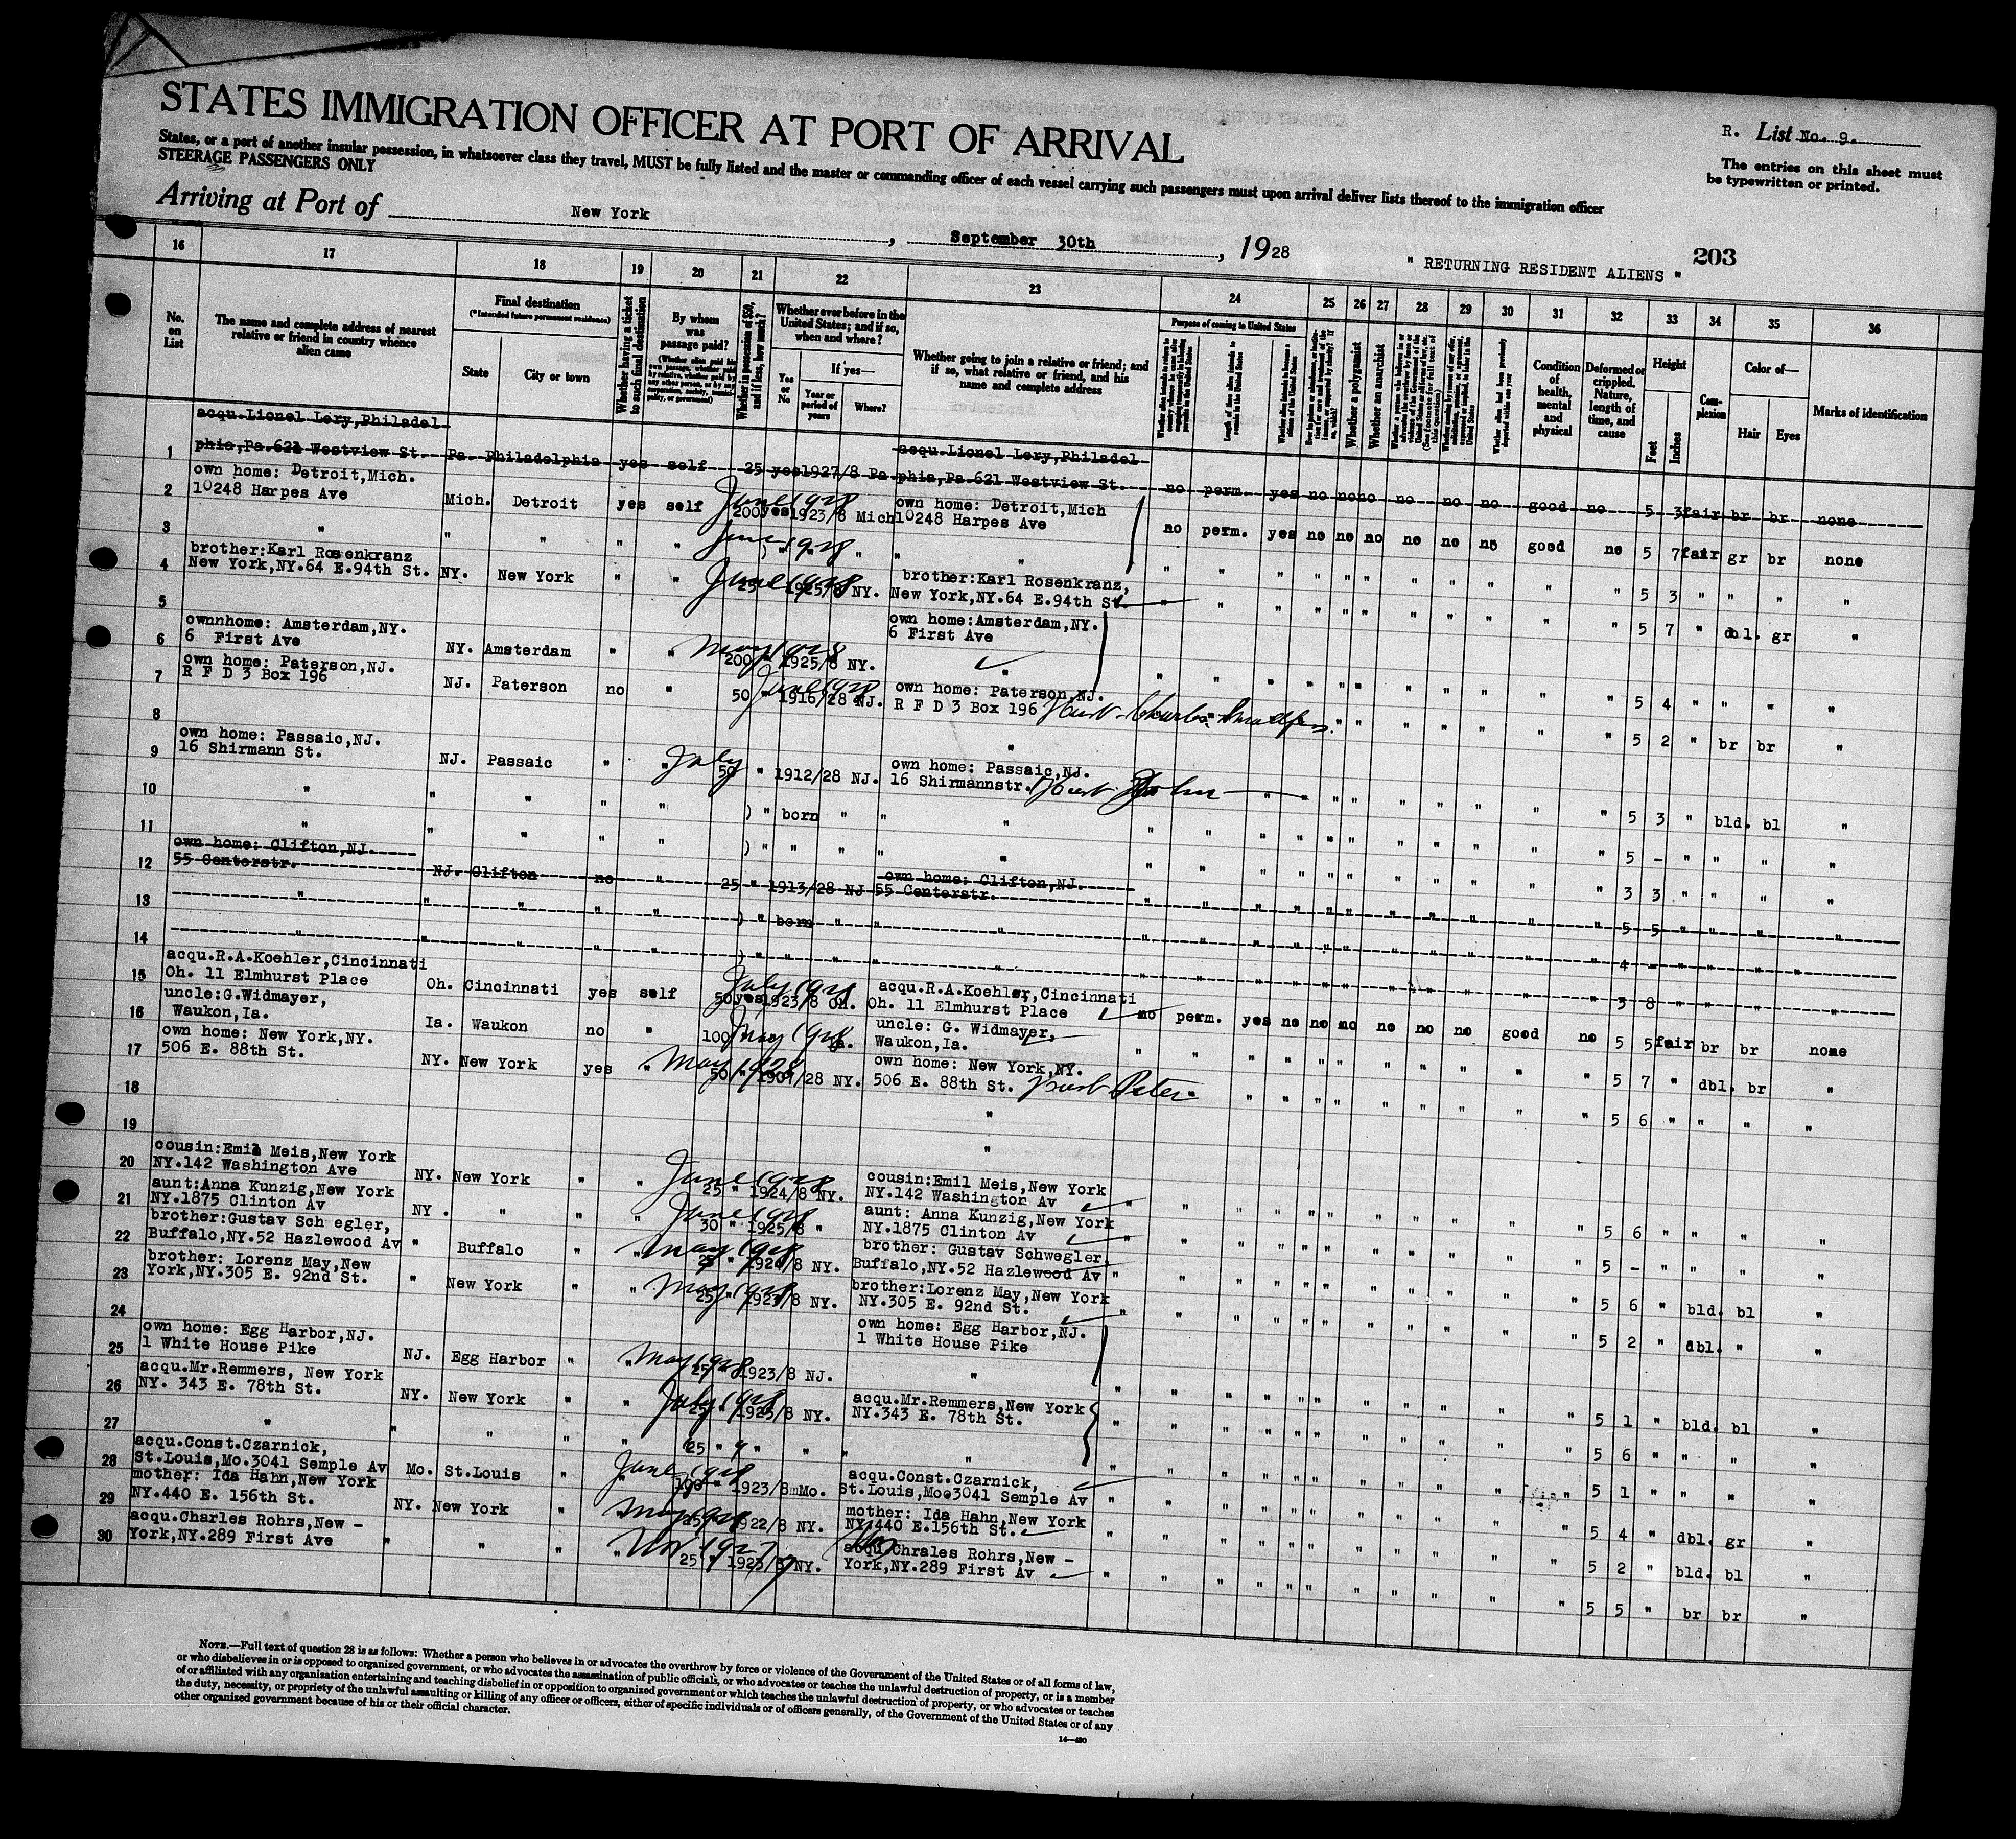 STATES IMMIGRATION OFFICER AT PORT OF ARRIVAL
R. List No. 9.
States, or a port of another insular possession, in whatsoever class they travel, MUST be fully listed and the master or commanding officer of each vessel carrying such passengers must upon arrival deliver lists thereof to the immigration officer
STEERAGE PASSENGERS ONLY
The entries on this sheet must
be typewritten or printed.
Arriving at Port of New York, September 30th, 1928
" RETURNING RESIDENT ALIENS " 203
16 17 18 19 20 21 22 23 24 25 26 27 28 29 30 31 32 33 34 35 36
No. on List
The name and complete address of nearest relative or friend in country whence alien came
Final destination
(*Intended future permanent residence)
State
City or town
Whether having a ticket to such final destination
By whom was passage paid?
Whether in possession of $50, and if less, how much?
Whether ever before in the United States; and if so, when and where?
Yes or No
If yes—
Year or period of years
Where?
Whether going to join a relative or friend; and if so, what relative or friend, and his name and complete address
Purpose of coming to United States
Whether a polygamist
Whether an anarchist
Condition of health, mental and physical
Deformed or crippled. Nature, length of time, and cause
Height
Feet
Inches
Complexion
Color of—
Hair
Eyes
Marks of identification
acqu.Lionel Lery,Philadel
1 phia,Pa.621 Westview St. Pa. Philadelphia yes self 25 yes 1927/8 Pa acqu.Lionel Lery,Philadel phia,Pa.621 Westview St. no perm. yes no no no no no no good no 5 3 fair br br none
own home: Detroit,Mich.
2 10248 Harpes Ave Mich. Detroit yes self June 1928 200 yes 1923/8 Mich own home: Detroit,Mich 10248 Harpes Ave no perm. yes no no no no no no good no 5 7 fair gr br none
3 " " " " " June 1928 " " " 5 3 " " " "
brother:Karl Rosenkranz
4 New York,NY.64 E.94th St. NY. New York " " June 1928 25 1925/8 NY. brother:Karl Rosenkranz, New York,NY.64 E.94th St. 5 7 " dbl. gr "
5 own home:Amsterdam,NY. 6 First Ave
ownnhome: Amsterdam,NY.
6 6 First Ave NY. Amsterdam " " May 1928 200 1925/8 NY. " 5 4 " " " "
own home: Paterson,NJ.
7 R F D 3 Box 196 NJ. Paterson no " 50 June 1928 1916/28 NJ. own home: Paterson,NJ. R F D 3 Box 196 5 2 " br br "
8 "
own home: Passaic,NJ.
9 16 Shirmann St. NJ. Passaic " " July 50 " 1912/28 NJ. own home: Passaic,NJ. 16 Shirmannstr. Husb. John 5 3 " bld. bl "
10 " " " " " ) " born " " " 5 - " " " "
11 " " " " " ) " " " " " 3 3 " " " "
own home: Clifton,NJ.
12 55 Centerstr. NJ. Clifton no " 25 " 1913/28 NJ own home: Clifton,NJ. 55 Centerstr. 5 5
13 " " " " " ) " born " " 4 -
14 " " " " " ) " " " " 3 8
acqu.R.A.Koehler,Cincinnati
15 Oh. 11 Elmhurst Place Oh. Cincinnati yes self July 1928 50 yes 1923/8 Oh. acqu.R.A.Koehler,Cincinnati Oh. 11 Elmhurst Place no perm. yes no no no no no no good no 5 5 fair br br none
uncle:G.Widmayer,
16 Waukon,Ia. Ia. Waukon no " 100 May 1928 Ia. uncle: G. Widmayer, Waukon,Ia. 5 7 " dbl. br "
own home: New York,NY.
17 506 E. 88th St. NY. New York yes " May 1928 50 " 1907/28 NY. own home: New York,NY. 506 E. 88th St. Husb Peter 5 6 " " " "
18 "
19 "
cousin:Emil Meis,New York
20 NY.142 Washington Ave NY. New York " " June 1928 25 " 1924/8 NY. cousin:Emil Meis,New York NY.142 Washington Av 5 6 " " " "
aunt:Anna Kunzig,New York
21 NY.1875 Clinton Av NY. " " " June 1928 30 " 1925/8 " aunt: Anna Kunzig,New York NY.1875 Clinton Av 5 - " " " "
brother:Gustav Sch egler,
22 Buffalo,NY.52 Hazlewood Av " Buffalo " " May 1928 25 " 1926/8 NY. brother: Gustav Schwegler, Buffalo,NY.52 Hazlewood Av 5 6 " bld. bl "
brother: Lorenz May,New
23 York,NY.305 E. 92nd St. " New York " " May 1928 25 " 1923/8 NY. brother:Lorenz May,New York NY.305 E. 92nd St. 5 2 " dbl. " "
24 own home: Egg Harbor,NJ. 1 White House Pike
own home: Egg Harbor,NJ.
25 1 White House Pike NJ. Egg Harbor " " May 1928 25 1923/8 NJ. " 5 1 " bld. bl "
acqu.Mr.Remmers, New York
26 NY. 343 E. 78th St. NY. New York " " July 1928 25 1925/8 NY. acqu.Mr.Remmers,New York NY.343 E. 78th St. 5 6 " " " "
27 " " " " " 25 " " " " " 5 1 " " " "
acqu.Const.Czarnick,
28 St.Louis,Mo.3041 Semple Av Mo. St.Louis " " June 1928 100 " 1923/8 Mo. acqu.Const.Czarnick, St.Louis,Moe3041 Semple Av 5 4 " dbl. gr "
mother: Ida Hahn,New York
29 NY.440 E. 156th St. NY. New York " " May 1928 1922/8 NY. mother: Ida Hahn,New York NY.440 E.156th St. 5 2 " bld. bl "
acqu.Charles Rohrs,New -
30 York,NY.289 First Ave " " " " Nov 1927 25 " 1923/ NY. acqu Chrales Rohrs,New - York,NY.289 First Av 5 5 " br br "
NOTE.—Full text of question 28 is as follows: Whether a person who believes in or advocates the overthrow by force or violence of the Government of the United States or of all forms of law,
or who disbelieves in or is opposed to organized government, or who advocates the assassination of public officials, or who advocates or teaches the unlawful destruction of property, or is a member
of or affiliated with any organization entertaining and teaching disbelief in or opposition to organized government or which teaches the unlawful destruction of property, or who advocates or teaches
the duty, necessity, or propriety of the unlawful assaulting or killing of any officer or officers, either of specific individuals or of officers generally, of the Government of the United States or of any
other organized government because of his or their official character.
14—430